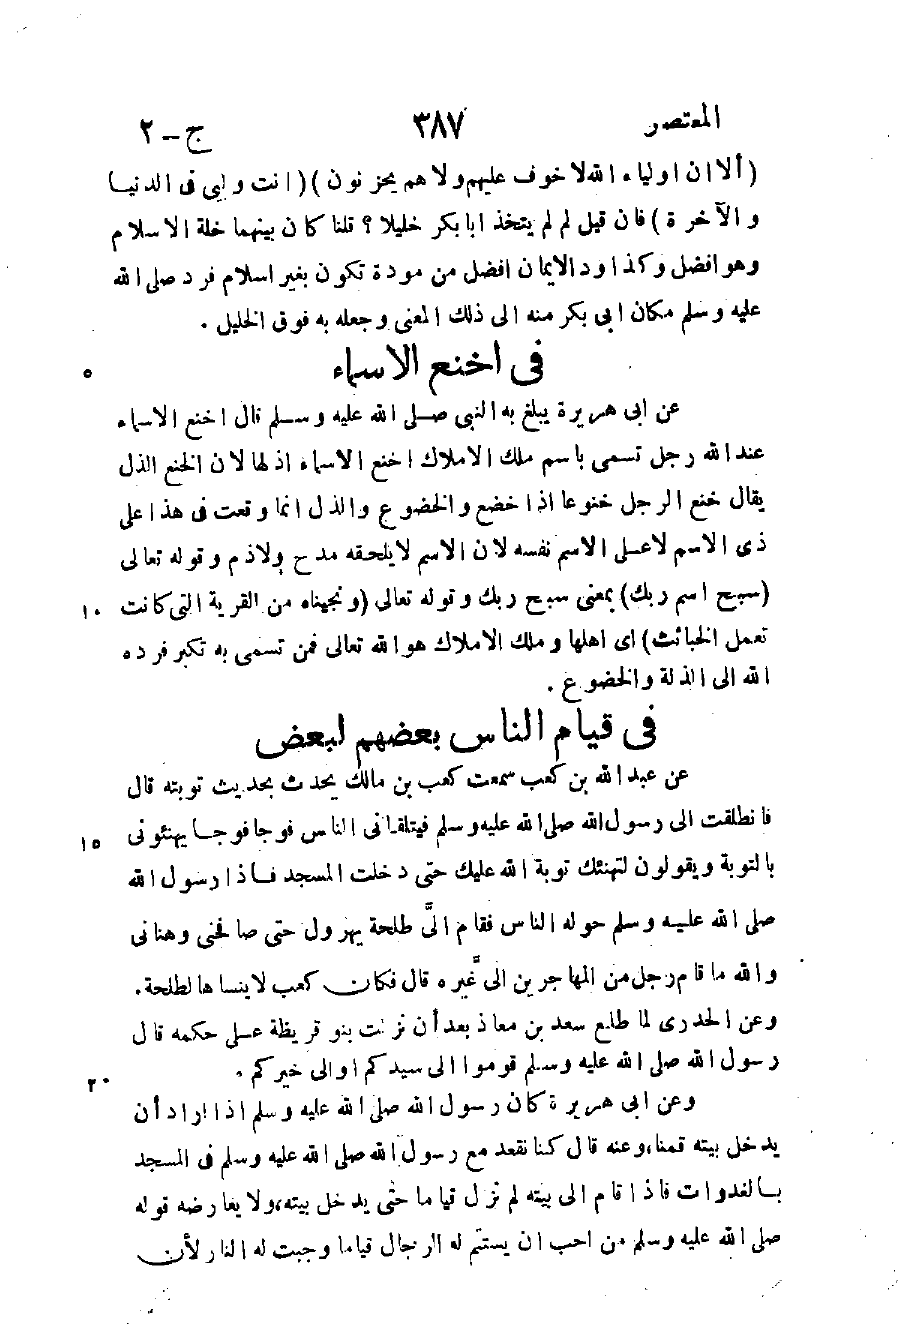 المعتصر ٣٨٧ ج - ٢
(ألا ان اولياء الله لا خوف عليهم ولا هم يحزنون)(انت وليى فى الدنيا
والآخرة) فان قيل لم لم يتخذ ابا بكر خليلا؟ قلنا كان بينهما خلة الاسلام
وهو افضل وكذا ود الايمان افضل من مودة تكون بغير اسلام فرد صلى الله
عليه وسلم مكان ابى بكر منه الى ذلك المعنى وجعله به فوق الخليل.
فى اخنع الاسماء
٥
عن ابى هريرة يبلغ به النبى صلى الله عليه وسلم قال اخنع الاسماء
عند الله رجل تسمى باسم ملك الاملاك اخنع الاسماء اذلها لان الخنع الذل
يقال خنع الرجل خنوعا اذا خضع والخضوع والذل انما وقعت فى هذا على
ذى الاسم لا على الاسم نفسه لان الاسم لا يلحقه مدح ولاذم وقوله تعالى
(سبح اسم ربك) بمعنى سبح ربك وقوله تعالى (ونجيناه من القرية التى كانت ١٠
تعمل الخبائث) اى اهلها وملك الاملاك هو الله تعالى فمن تسمى به تكبر فرده
الله الى الذلة والخضوع.
فى قيام الناس بعضهم لبعض
عن عبد الله بن كعب سمعت كعب بن مالك يحدث بحديث توبته قال
فانطلقت الى رسول الله صلى الله عليه وسلم فيتلقانى الناس فوجا فوجا يهنئونى ١٥
بالتوبة ويقولون لتهنئك توبة الله عليك حتى دخلت المسجد فاذا رسول الله
صلى الله عليه وسلم حوله الناس فقام الىّ طلحة يهرول حتى صافحنى وهنانى
والله ما قام رجل من المهاجرين الىّ غيره قال فكان كعب لا ينساها لطلحة.
وعن الخدرى لما طلع سعد بن معاذ بعد أن نزلت بنو قريظة على حكمه قال
رسول الله صلى الله عليه وسلم قوموا الى سيدكم او الى خيركم. ٢٠
وعن ابى هريرة كان رسول الله صلى الله عليه وسلم اذا اراد أن
يدخل بيته قمنا، وعنه قال كنا نقعد مع رسول الله صلى الله عليه وسلم فى المسجد
بالغدوات فاذا قام الى بيته لم نزل قياما حتى يدخل بيته، ولا يعارضه قوله
صلى الله عليه وسلم من احب ان يستتم له الرجال قياما وجبت له النار لأن